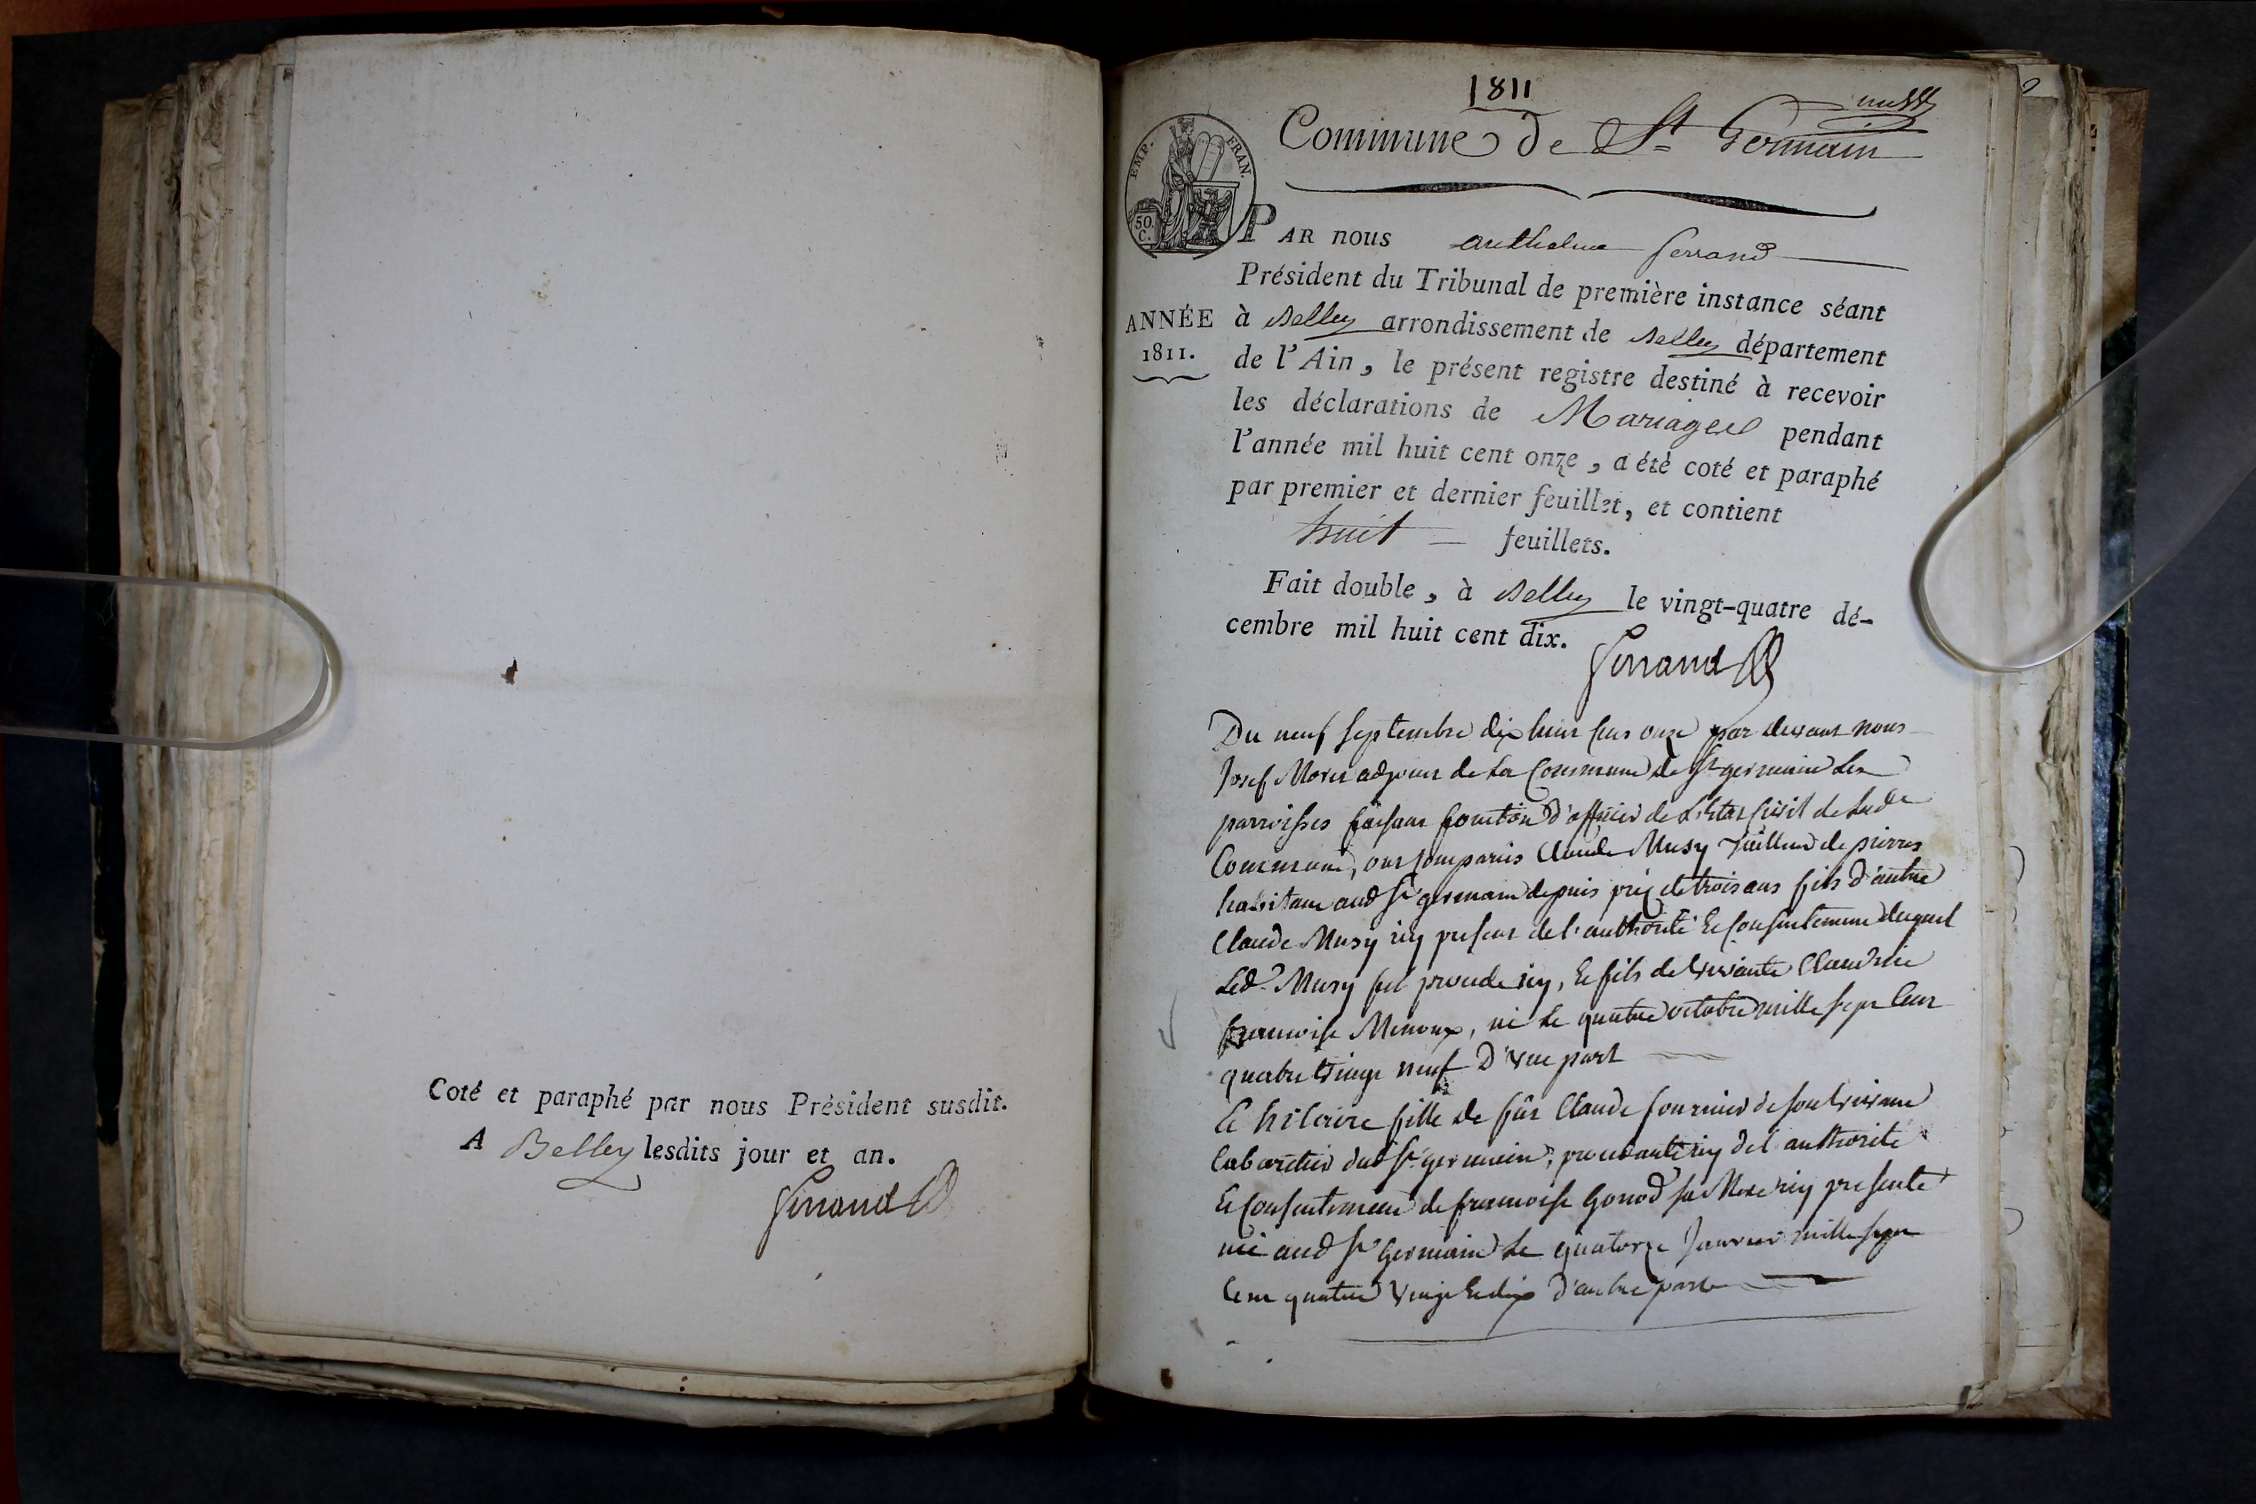 Coté et paraphé par nous Président susdit.
A Belley lesdits jour et an.
ferrand
1811
Commune de St Germain
EMP. FRAN.
50 C.
PAR nous anthelme ferrand
Président du Tribunal de première instance séant
ANNÉE
1811.
à Belley arrondissement de Belley département
de l'Ain, le présent registre destiné à recevoir
les déclarations de Mariages pendant
l'année mil huit cent onze, a été coté et paraphé
par premier et dernier feuillet, et contient
huit feuillets.
Fait double, à Belley le vingt-quatre dé-
cembre mil huit cent dix.
ferrand
Du neuf septembre dix huit cens onze par devant nous
Josef adjoint de la Commune de St germain Les
parroisses faisant fonction d'officier de L'état Civil de lade
Commune, ont comparus Claude Musy tailleur de pierres
habitant aud St germain depuis près de trois ans fils d'autre
Claude Musy icy present de l'authorité Et Consentement duquel
Led. Musy fil procede icy, Et fils de vivante Claudine
francoise Menoux, né le quatre octobre mille sept Cent
quatre vingt neuf D'une part
Et hilaire fille de fût Claude fournier de son vivant
Cabaretier dud St germain, procedante icy de l'authorité
Et Consentement de francoise Gonod sa Mere icy presente
née aud St Germain le quatorze Janvier mille sept
Cent quatre vingt Et dix d'autre part